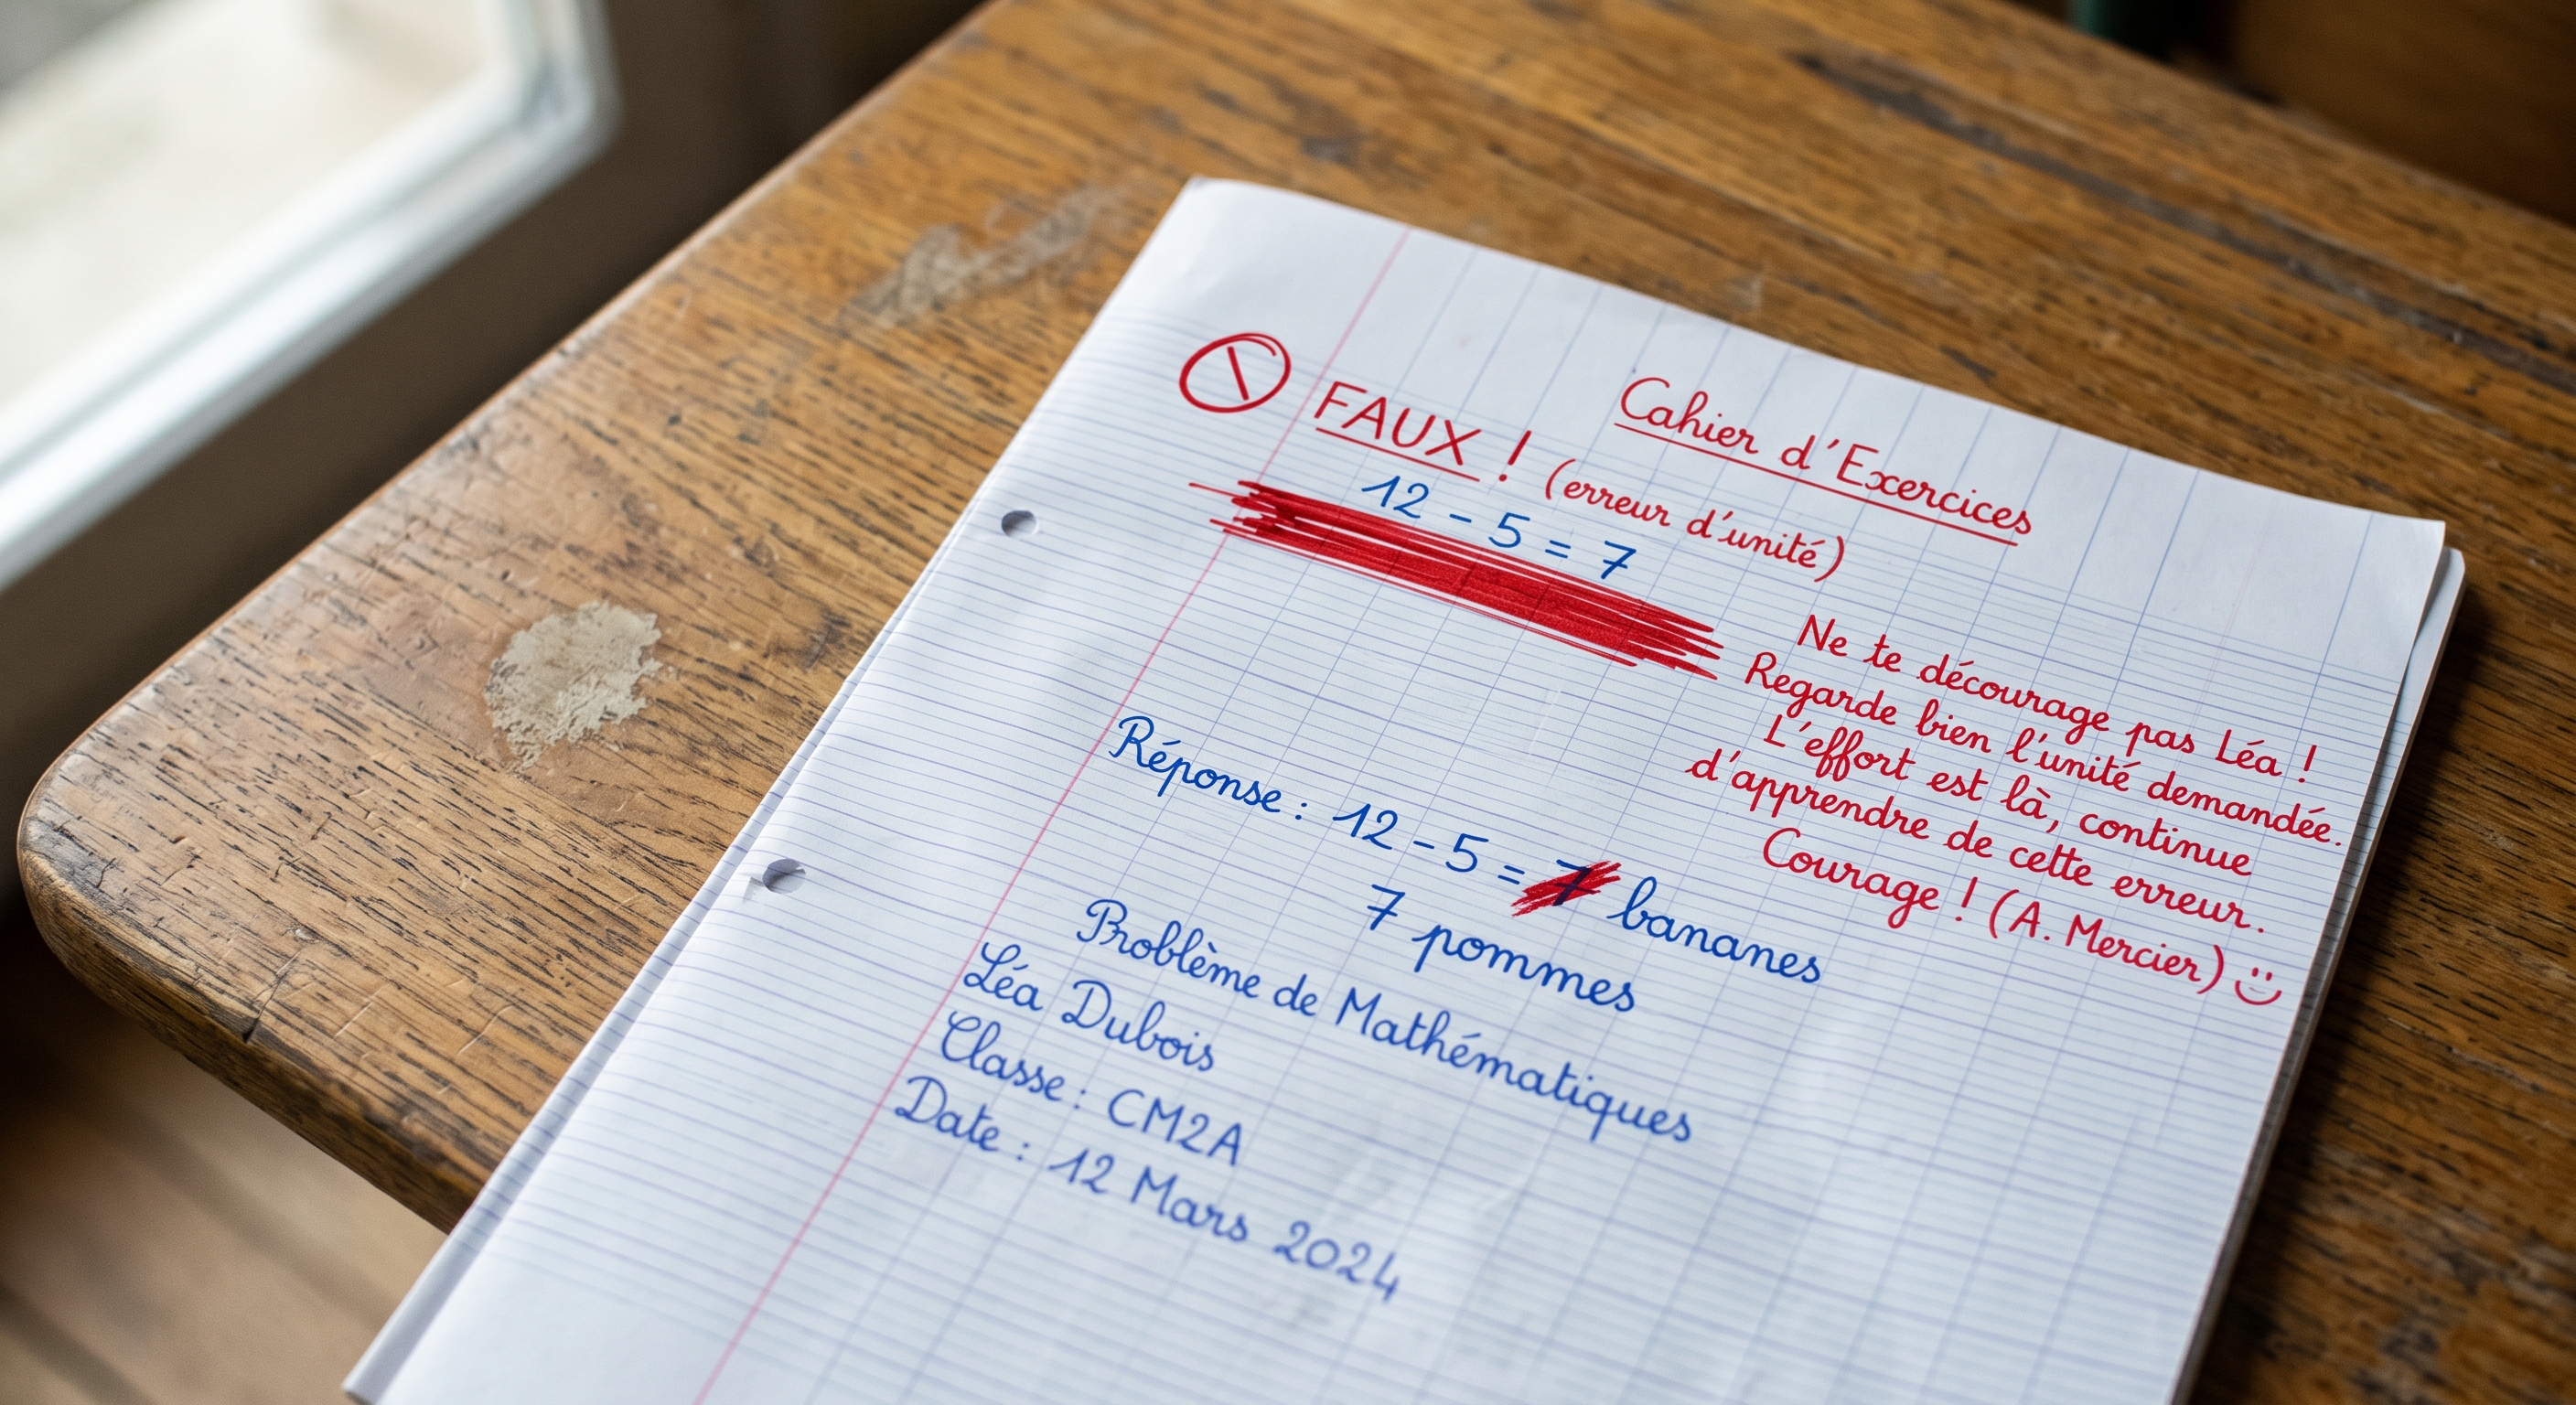 Cahier d'Exercices
FAUX ! (erreur d'unité)
12 - 5 = 7
Ne te décourage pas Léa !
Regarde bien l'unité demandée.
L'effort est là, continue
d'apprendre de cette erreur.
Courage ! (A. Mercier)
Réponse : 12 - 5 = 7 bananes
7 pommes
Problème de Mathématiques
Léa Dubois
Classe : CM2A
Date : 12 Mars 2024